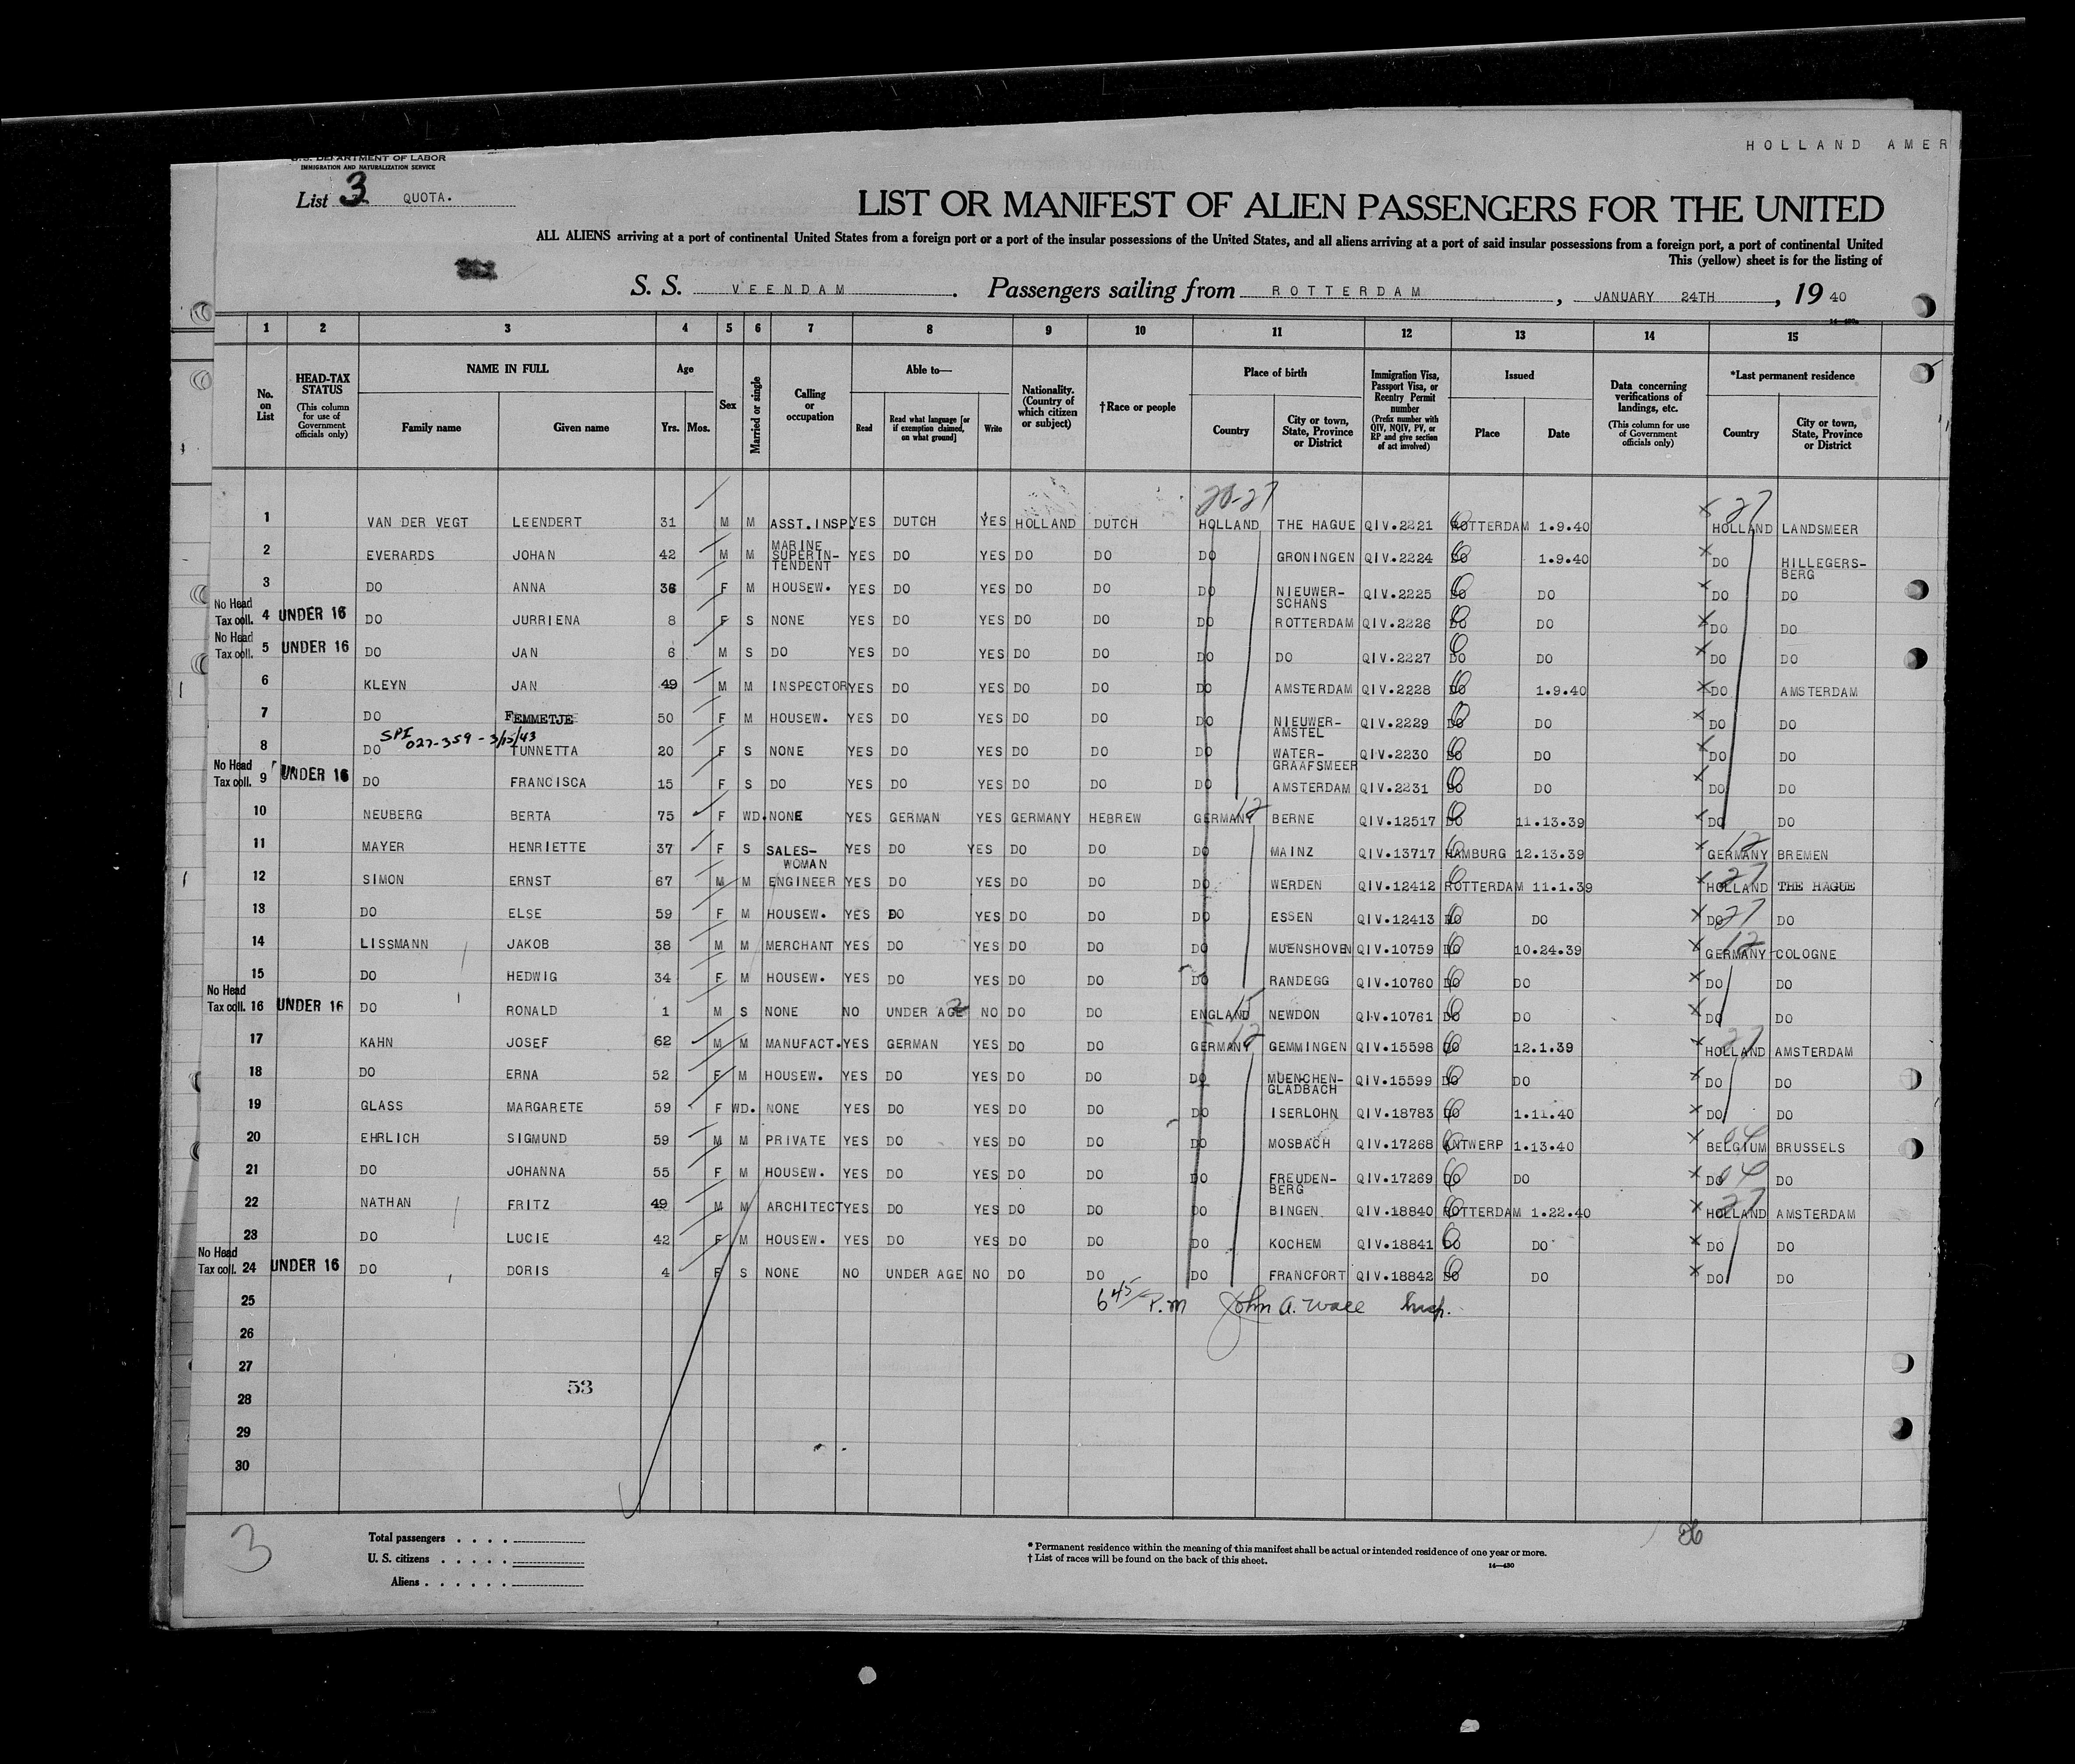 HOLLAND AMER
U.S. DEPARTMENT OF LABOR
IMMIGRATION AND NATURALIZATION SERVICE
List 3 QUOTA.
LIST OR MANIFEST OF ALIEN PASSENGERS FOR THE UNITED
ALL ALIENS arriving at a port of continental United States from a foreign port or a port of the insular possessions of the United States, and all aliens arriving at a port of said insular possessions from a foreign port, a port of continental United
This (yellow) sheet is for the listing of
S. S. VEENDAM . Passengers sailing from ROTTERDAM , JANUARY 24TH , 19 40
1 2 3 4 5 6 7 8 9 10 11 12 13 14 15
No. on List
HEAD-TAX STATUS (This column for use of Government officials only)
NAME IN FULL
Family name Given name
Age
Yrs. Mos.
Sex
Married or single
Calling or occupation
Able to—
Read Read what language [or if exemption claimed, on what ground] Write
Nationality. (Country of which citizen or subject)
†Race or people
Place of birth
Country City or town, State, Province or District
Immigration Visa, Passport Visa, or Reentry Permit number (Prefix number with QIV, NQIV, PV, or RP and give section of act involved)
Issued
Place Date
Data concerning verifications of landings, etc. (This column for use of Government officials only)
*Last permanent residence
Country City or town, State, Province or District
20-27 27
1 VAN DER VEGT LEENDERT 31 M M ASST.INSP. YES DUTCH YES HOLLAND DUTCH HOLLAND THE HAGUE QIV.2221 ROTTERDAM 1.9.40 HOLLAND LANDSMEER
2 EVERARDS JOHAN 42 M M MARINE SUPERIN-TENDENT YES DO YES DO DO DO GRONINGEN QIV.2224 DO 1.9.40 DO HILLEGERS-BERG
3 DO ANNA 36 F M HOUSEW. YES DO YES DO DO DO NIEUWER-SCHANS QIV.2225 DO DO DO DO
No Head Tax coll. 4 UNDER 16 DO JURRIENA 8 F S NONE YES DO YES DO DO DO ROTTERDAM QIV.2226 DO DO DO DO
No Head Tax coll. 5 UNDER 16 DO JAN 6 M S DO YES DO YES DO DO DO DO QIV.2227 DO DO DO DO
6 KLEYN JAN 49 M M INSPECTOR YES DO YES DO DO DO AMSTERDAM QIV.2228 DO 1.9.40 DO AMSTERDAM
7 DO FEMMETJE 50 F M HOUSEW. YES DO YES DO DO DO NIEUWER-AMSTEL QIV.2229 DO DO DO DO
SPI 027-359 - 3/15/43
8 DO TUNNETTA 20 F S NONE YES DO YES DO DO DO WATER-GRAAFSMEER QIV.2230 DO DO DO DO
No Head Tax coll. 9 UNDER 16 DO FRANCISCA 15 F S DO YES DO YES DO DO DO AMSTERDAM QIV.2231 DO DO DO DO
10 NEUBERG BERTA 75 F WD. NONE YES GERMAN YES GERMANY HEBREW GERMANY 12 BERNE QIV.12517 DO 11.13.39 DO DO
11 MAYER HENRIETTE 37 F S SALES-WOMAN YES DO YES DO DO DO MAINZ QIV.13717 HAMBURG 12.13.39 GERMANY 12 BREMEN
12 SIMON ERNST 67 M M ENGINEER YES DO YES DO DO DO WERDEN QIV.12412 ROTTERDAM 11.1.39 HOLLAND 27 THE HAGUE
13 DO ELSE 59 F M HOUSEW. YES DO YES DO DO DO ESSEN QIV.12413 DO DO DO 27 DO
14 LISSMANN JAKOB 38 M M MERCHANT YES DO YES DO DO DO MUENSHOVEN QIV.10759 DO 10.24.39 GERMANY 12 COLOGNE
15 DO HEDWIG 34 F M HOUSEW. YES DO YES DO DO DO RANDEGG QIV.10760 DO DO DO DO
No Head Tax coll. 16 UNDER 16 DO RONALD 1 M S NONE NO UNDER AGE NO DO DO ENGLAND 15 NEWDON QIV.10761 DO DO DO DO
17 KAHN JOSEF 62 M M MANUFACT. YES GERMAN YES DO DO GERMANY 12 GEMMINGEN QIV.15598 DO 12.1.39 HOLLAND 27 AMSTERDAM
18 DO ERNA 52 F M HOUSEW. YES DO YES DO DO DO MUENCHEN-GLADBACH QIV.15599 DO DO DO DO
19 GLASS MARGARETE 59 F WD. NONE YES DO YES DO DO DO ISERLOHN QIV.18783 DO 1.11.40 DO DO
20 EHRLICH SIGMUND 59 M M PRIVATE YES DO YES DO DO DO MOSBACH QIV.17268 ANTWERP 1.13.40 BELGIUM 04 BRUSSELS
21 DO JOHANNA 55 F M HOUSEW. YES DO YES DO DO DO FREUDEN-BERG QIV.17269 DO DO DO 04 DO
22 NATHAN FRITZ 49 M M ARCHITECT YES DO YES DO DO DO BINGEN QIV.18840 ROTTERDAM 1.22.40 HOLLAND 27 AMSTERDAM
23 DO LUCIE 42 F M HOUSEW. YES DO YES DO DO DO KOCHEM QIV.18841 DO DO DO DO
No Head Tax coll. 24 UNDER 16 DO DORIS 4 F S NONE NO UNDER AGE NO DO DO DO FRANCFORT QIV.18842 DO DO DO DO
25 6 45/ P.M John A. Wace Insp.
26
27
53
28
29
30
3
Total passengers
U. S. citizens
Aliens
* Permanent residence within the meaning of this manifest shall be actual or intended residence of one year or more.
† List of races will be found on the back of this sheet.
14—430